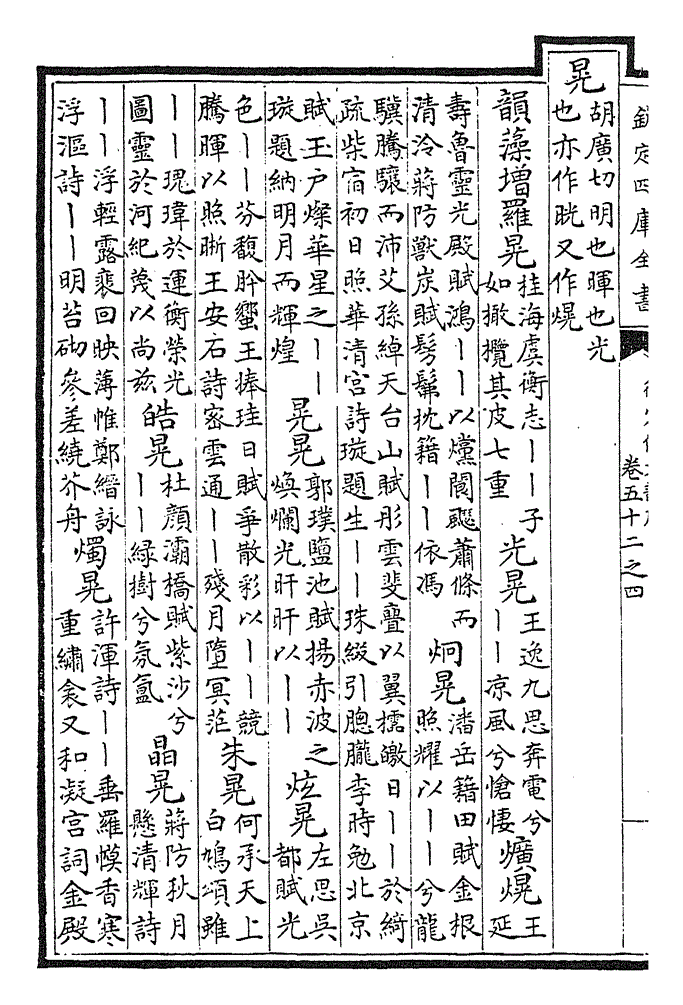 欽定四庫全書
卷五十二之四
晃 胡廣切明也暉也光也亦作晄又作熀
韻藻增羅晃 桂海虞衡志丨丨子如橄欖其皮七重 光晃 王逸九思奔電兮丨丨凉風兮愴悽 爌熀 王延
壽魯靈光殿賦鴻丨丨以爣閬飋蕭條而清泠蔣防獸炭賦髣髴枕籍丨丨依馮 炯晃 潘岳籍田賦金根照耀以丨丨兮龍
驥騰驤而沛艾孫綽天台山賦彤雲斐亹以翼櫺皦日丨丨於綺疏柴宿初日照華清宮詩璇題生丨丨珠綴引朣朧李時勉北京
賦玉户燦華星之丨丨璇題納明月而輝煌 晃晃 郭璞鹽池賦揚赤波之煥爛光旰旰以丨丨 炫晃 左思吳都賦光
色丨丨芬馥肸蠁王捧珪日賦爭散彩以丨丨競騰暉以照晰王安石詩密雲通丨丨殘月墮冥茫 朱晃 何承天上白鳩頌雖
丨丨瑰瑋於運衡榮光圖靈於河紀蔑以尚兹 皓晃 杜顔灞橋賦紫沙兮丨丨緑樹兮氛氳 晶晃 蔣防秋月懸清輝詩
丨丨浮輕露裴回映薄帷鄭縉詠浮漚詩丨丨明苔砌參差繞芥舟 燭晃 許渾詩丨丨垂羅幙香寒重繡衾又和凝宫詞金殿